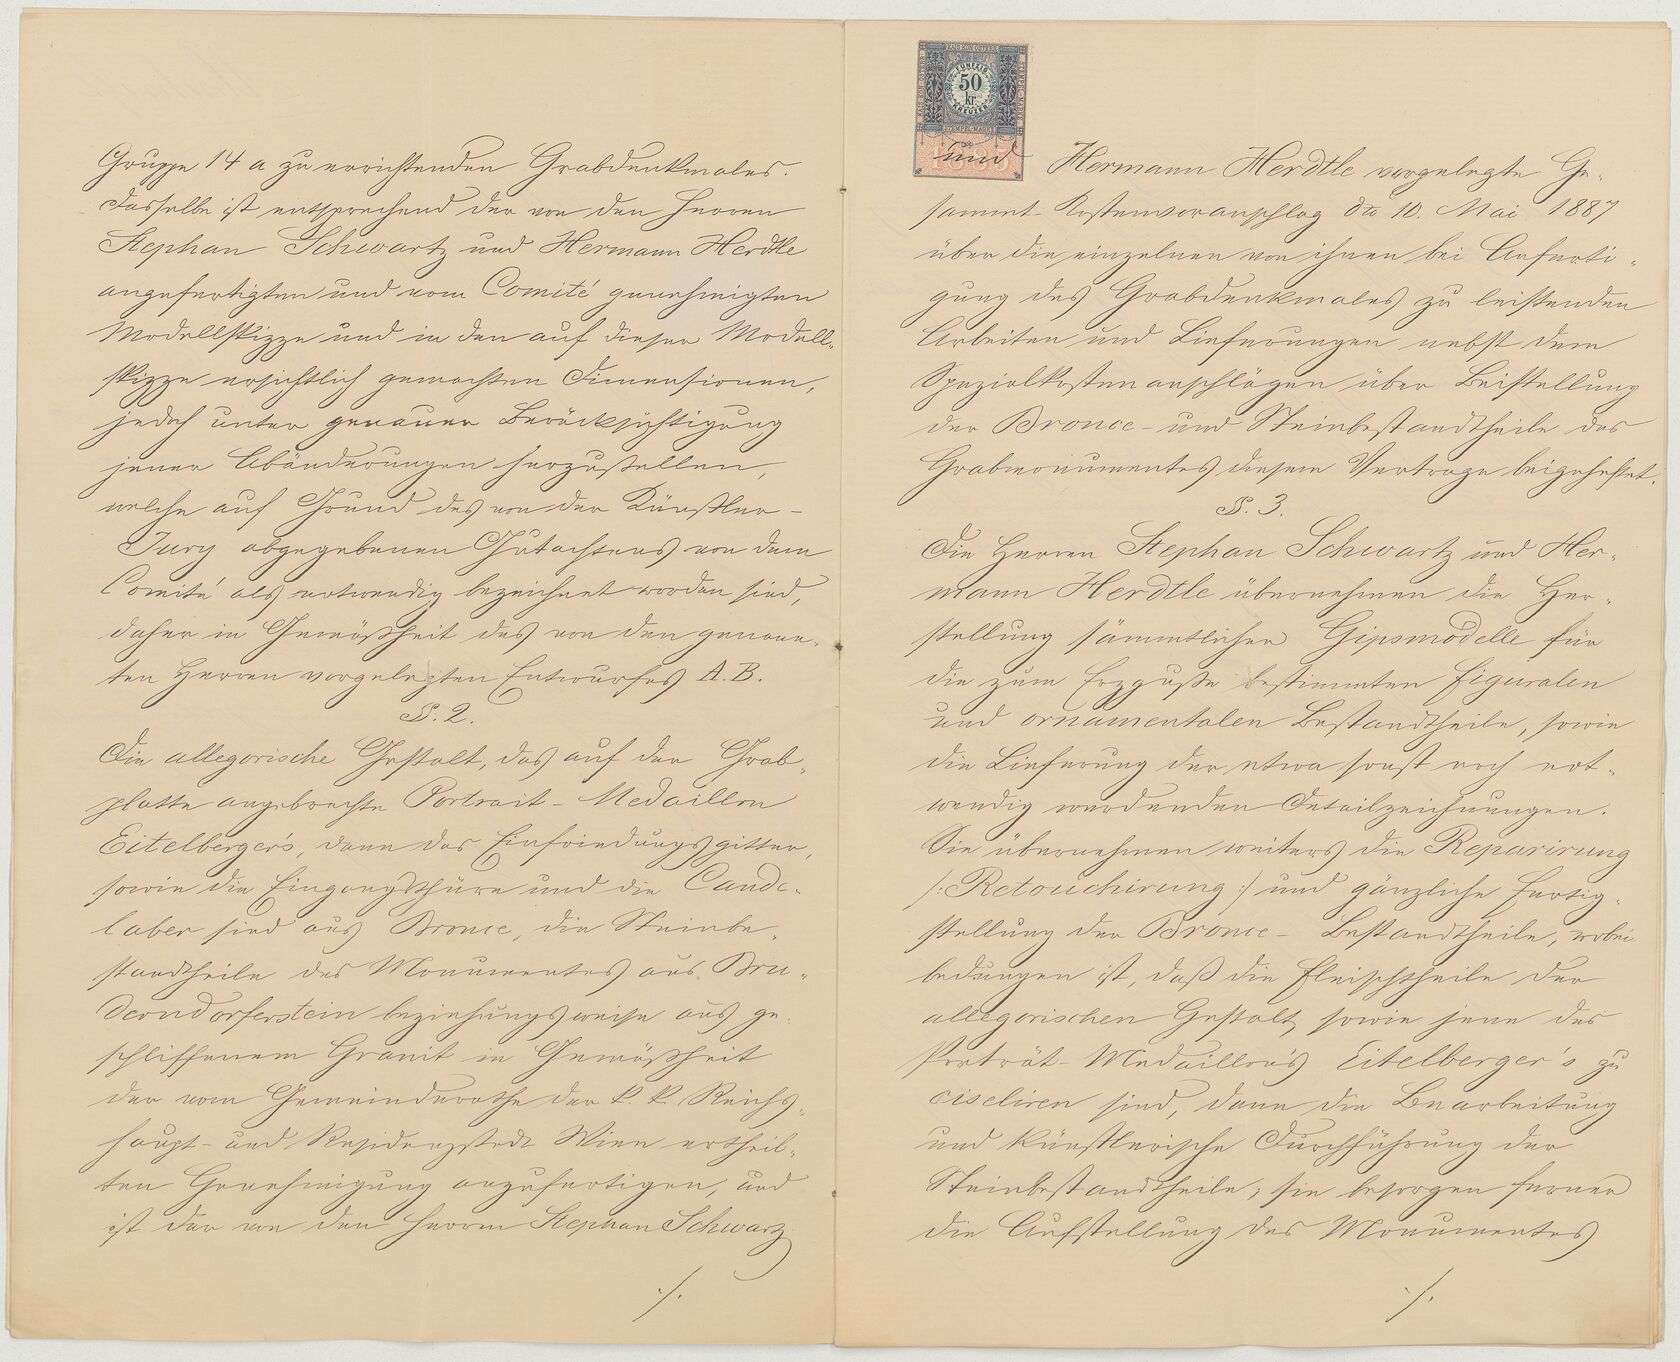 Gruppe 14 a zu errichtenden Grabdenkmales.
Dasselbe ist entsprechend der von den Herren
Stephan Schwartz und Hermann Herdtle
angefertigten und vom Comité genehmigten
Modellskizze und in den auf dieser Modell-
skizze ersichtlich gemachten Dimensionen,
jedoch unter genauer Berücksichtigung
jener Abänderungen herzustellen,
welche auf Grund des von der Künstler-
Jury abgegebenen Gutachtens von dem
Comité als notwendig bezeichnet worden sind,
daher in Gemäßheit des von den genann-
ten Herren vorgelegten Entwurfes A. B.
§. 2.
Die allegorische Gestalt, das auf der Grab-
platte angebrachte Portrait-Medaillon
Eitelberger's, dann das Einfriedungsgitter,
sowie die Eingangsthüre und die Cande-
laber sind aus Bronce, die Steinbe-
standtheile des Monumentes aus Bru-
derndorferstein beziehungsweise aus ge-
schliffenem Granit in Gemäßheit
der vom Gemeinderathe der k. k. Reichs-
haupt- und Residenzstadt Wien ertheil-
ten Genehmigung anzufertigen, und
ist der von den Herren Stephan Schwarz
./.
KAIS. KÖN. ÖSTERR.
FÜNFZIG
50
kr.
KREUZER
STEMPEL-MARKE
1885
und Hermann Herdtle vorgelegte Ge-
sammt-Kostenvoranschlag dto 10. Mai 1887
über die einzelnen von ihnen bei Anferti-
gung des Grabdenkmales zu leistenden
Arbeiten und Lieferungen nebst dem
Spezialkostenanschlägen über Beistellung
der Bronce- und Steinbestandtheile des
Grabmonumentes diesem Vertrage beigeheftet.
§. 3.
Die Herren Stephan Schwartz und Her-
mann Herdtle übernehmen die Her-
stellung sämmtlicher Gipsmodelle für
die zum Erzguße bestimmten figuralen
und ornamentalen Bestandtheile, sowie
die Lieferung der etwa sonst noch not-
wendig werdenden Detailzeichnungen.
Sie übernehmen weiters die Reparirung
/: Retouchirung :/ und gänzliche Fertig-
stellung der Bronce- Bestandtheile, wobei
bedungen ist, daß die Fleischtheile der
allegorischen Gestalt sowie jene des
Porträt-Medaillons Eitelberger's zu
ciseliren sind, dann die Bearbeitung
und künstlerische Durchführung der
Steinbestandtheile; sie besorgen ferner
die Aufstellung des Monumentes
./.